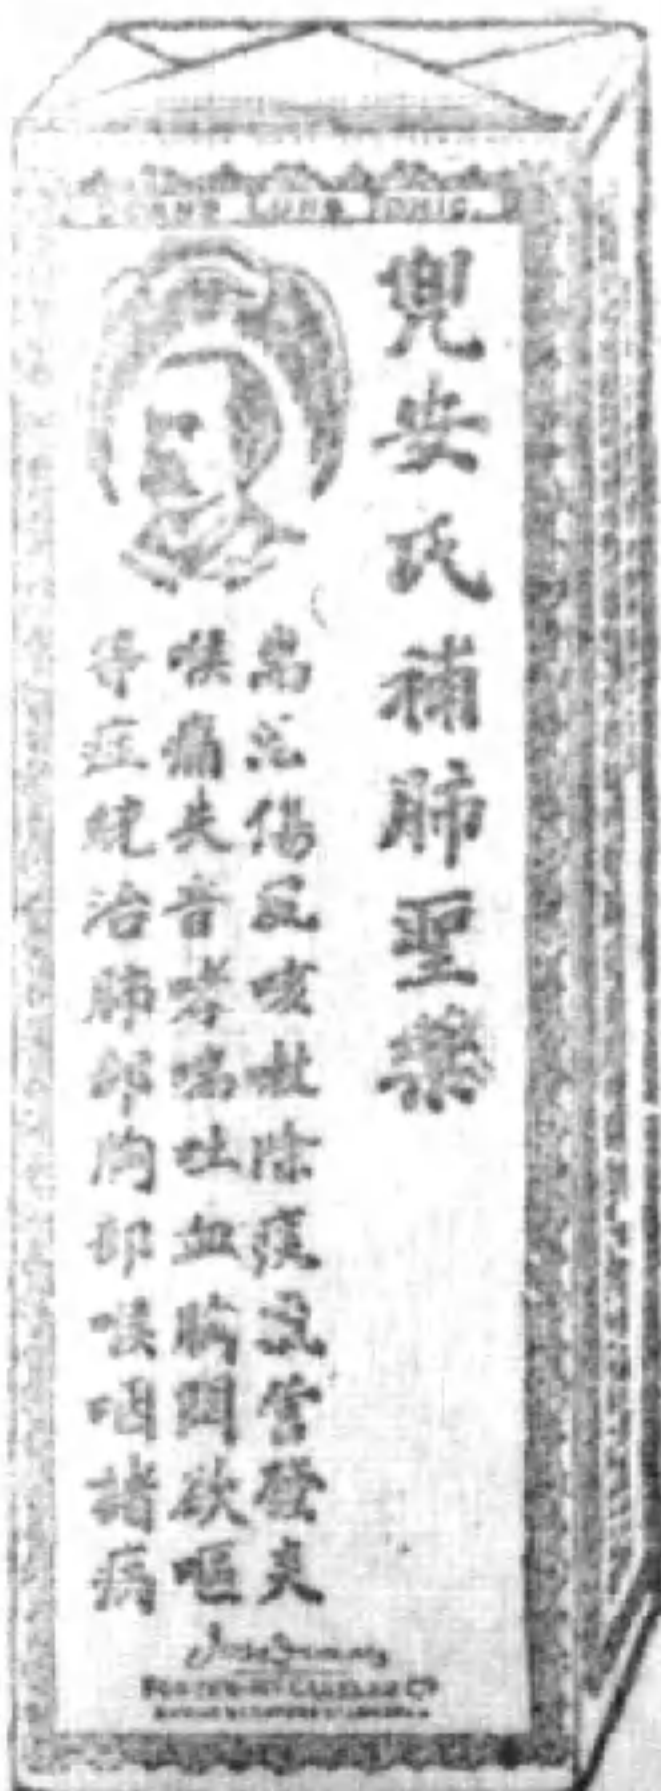 LUNG TONIC.
兜安氏補肺聖藥
傷風咳嗽除痰氣管發炎
喉痛失音哮喘吐血胸悶欲嘔
等症統治肺部胸部喉咽諸病
FOSTER-MCCLELLAN CO